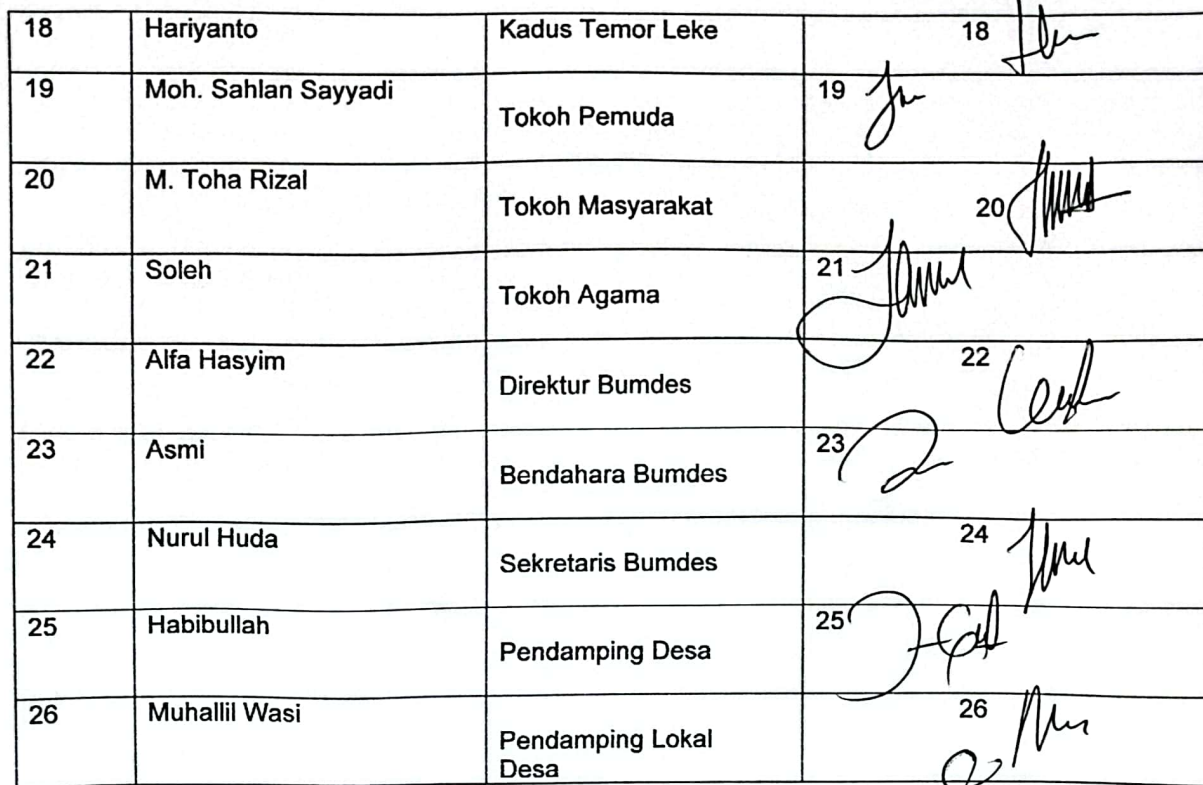 18 Hariyanto Kadus Temor Leke 18
19 Moh. Sahlan Sayyadi Tokoh Pemuda 19
20 M. Toha Rizal Tokoh Masyarakat 20
21 Soleh Tokoh Agama 21
22 Alfa Hasyim Direktur Bumdes 22
23 Asmi Bendahara Bumdes 23
24 Nurul Huda Sekretaris Bumdes 24
25 Habibullah Pendamping Desa 25
26 Muhallil Wasi Pendamping Lokal 26
Desa